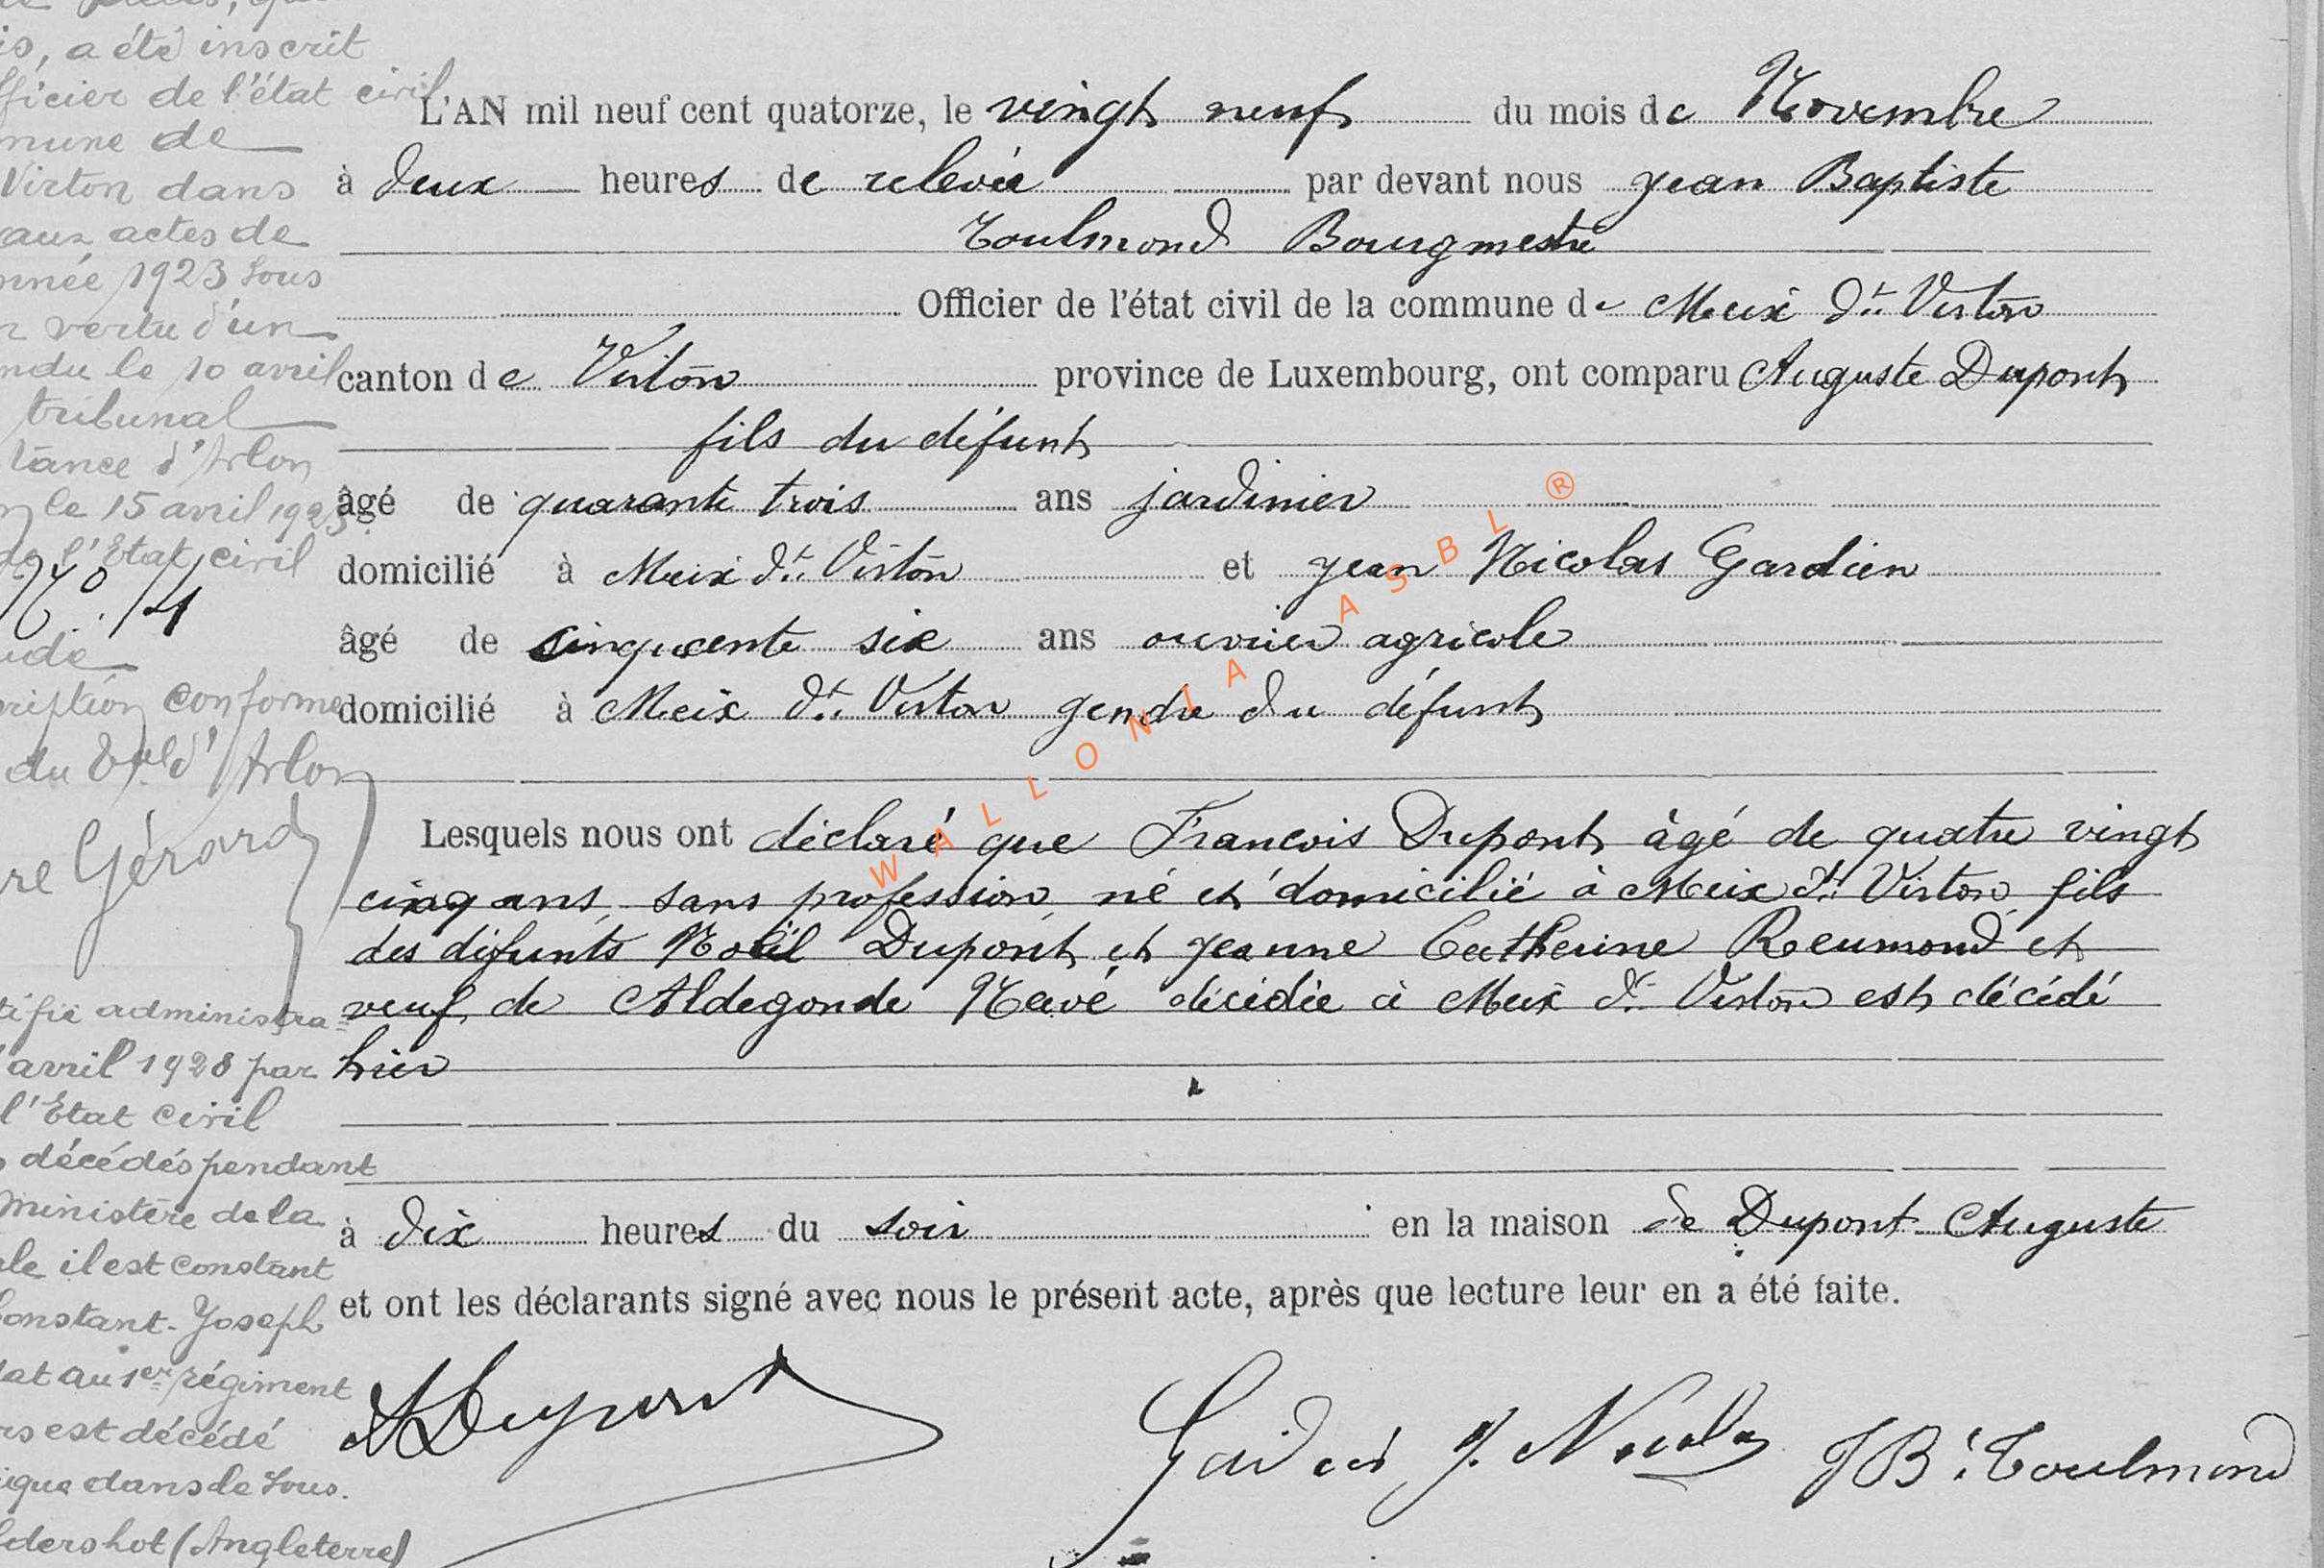 is, a été inscrit
fficier de l'état civil
mune de
Virton dans
aux actes de
nnée 1923 sous
n vertu d'un
ndu le 10 avril
tribunal
tance d'Arlon
le 15 avril 1923
de l'Etat civil
N° 14
ription conforme
du Bel d'Arlon
re Gérard
tifié administra-
avril 1928 par
l'Etat civil
décédés pendant
ministère de la
le il est constant
Constant-Joseph
dat au 1er régiment
rs est décédé
ique dans le sous.
ldershot (Angleterre)
L'AN mil neuf cent quatorze, le vingt neuf du mois de Novembre
à deux heures de relevée par devant nous Jean Baptiste
Toulmond Bourgmestre
Officier de l'état civil de la commune de Meix dt Virton
canton de Virton province de Luxembourg, ont comparu Auguste Dupont
fils du défunt
âgé de quarante trois ans jardinier
domicilié à Meix dt Virton et Jean Nicolas Gardien
âgé de cinquante six ans ouvrier agricole
domicilié à Meix dt Virton gendre du défunt
Lesquels nous ont déclaré que Francois Dupont âgé de quatre vingt
cinq ans, sans profession, né et domicilié à Meix dt Virton fils
des défunts Noël Dupont et Jeanne Catherine Reumond et
veuf de Aldegonde Navé décédée à Meix dt Virton est décédé
hier
à dix heures du soir en la maison de Dupont Auguste
et ont les déclarants signé avec nous le présent acte, après que lecture leur en a été faite.
ADupont
Gardien J. Nicolas JBte Toulmond
WALLONIA ASBL ®